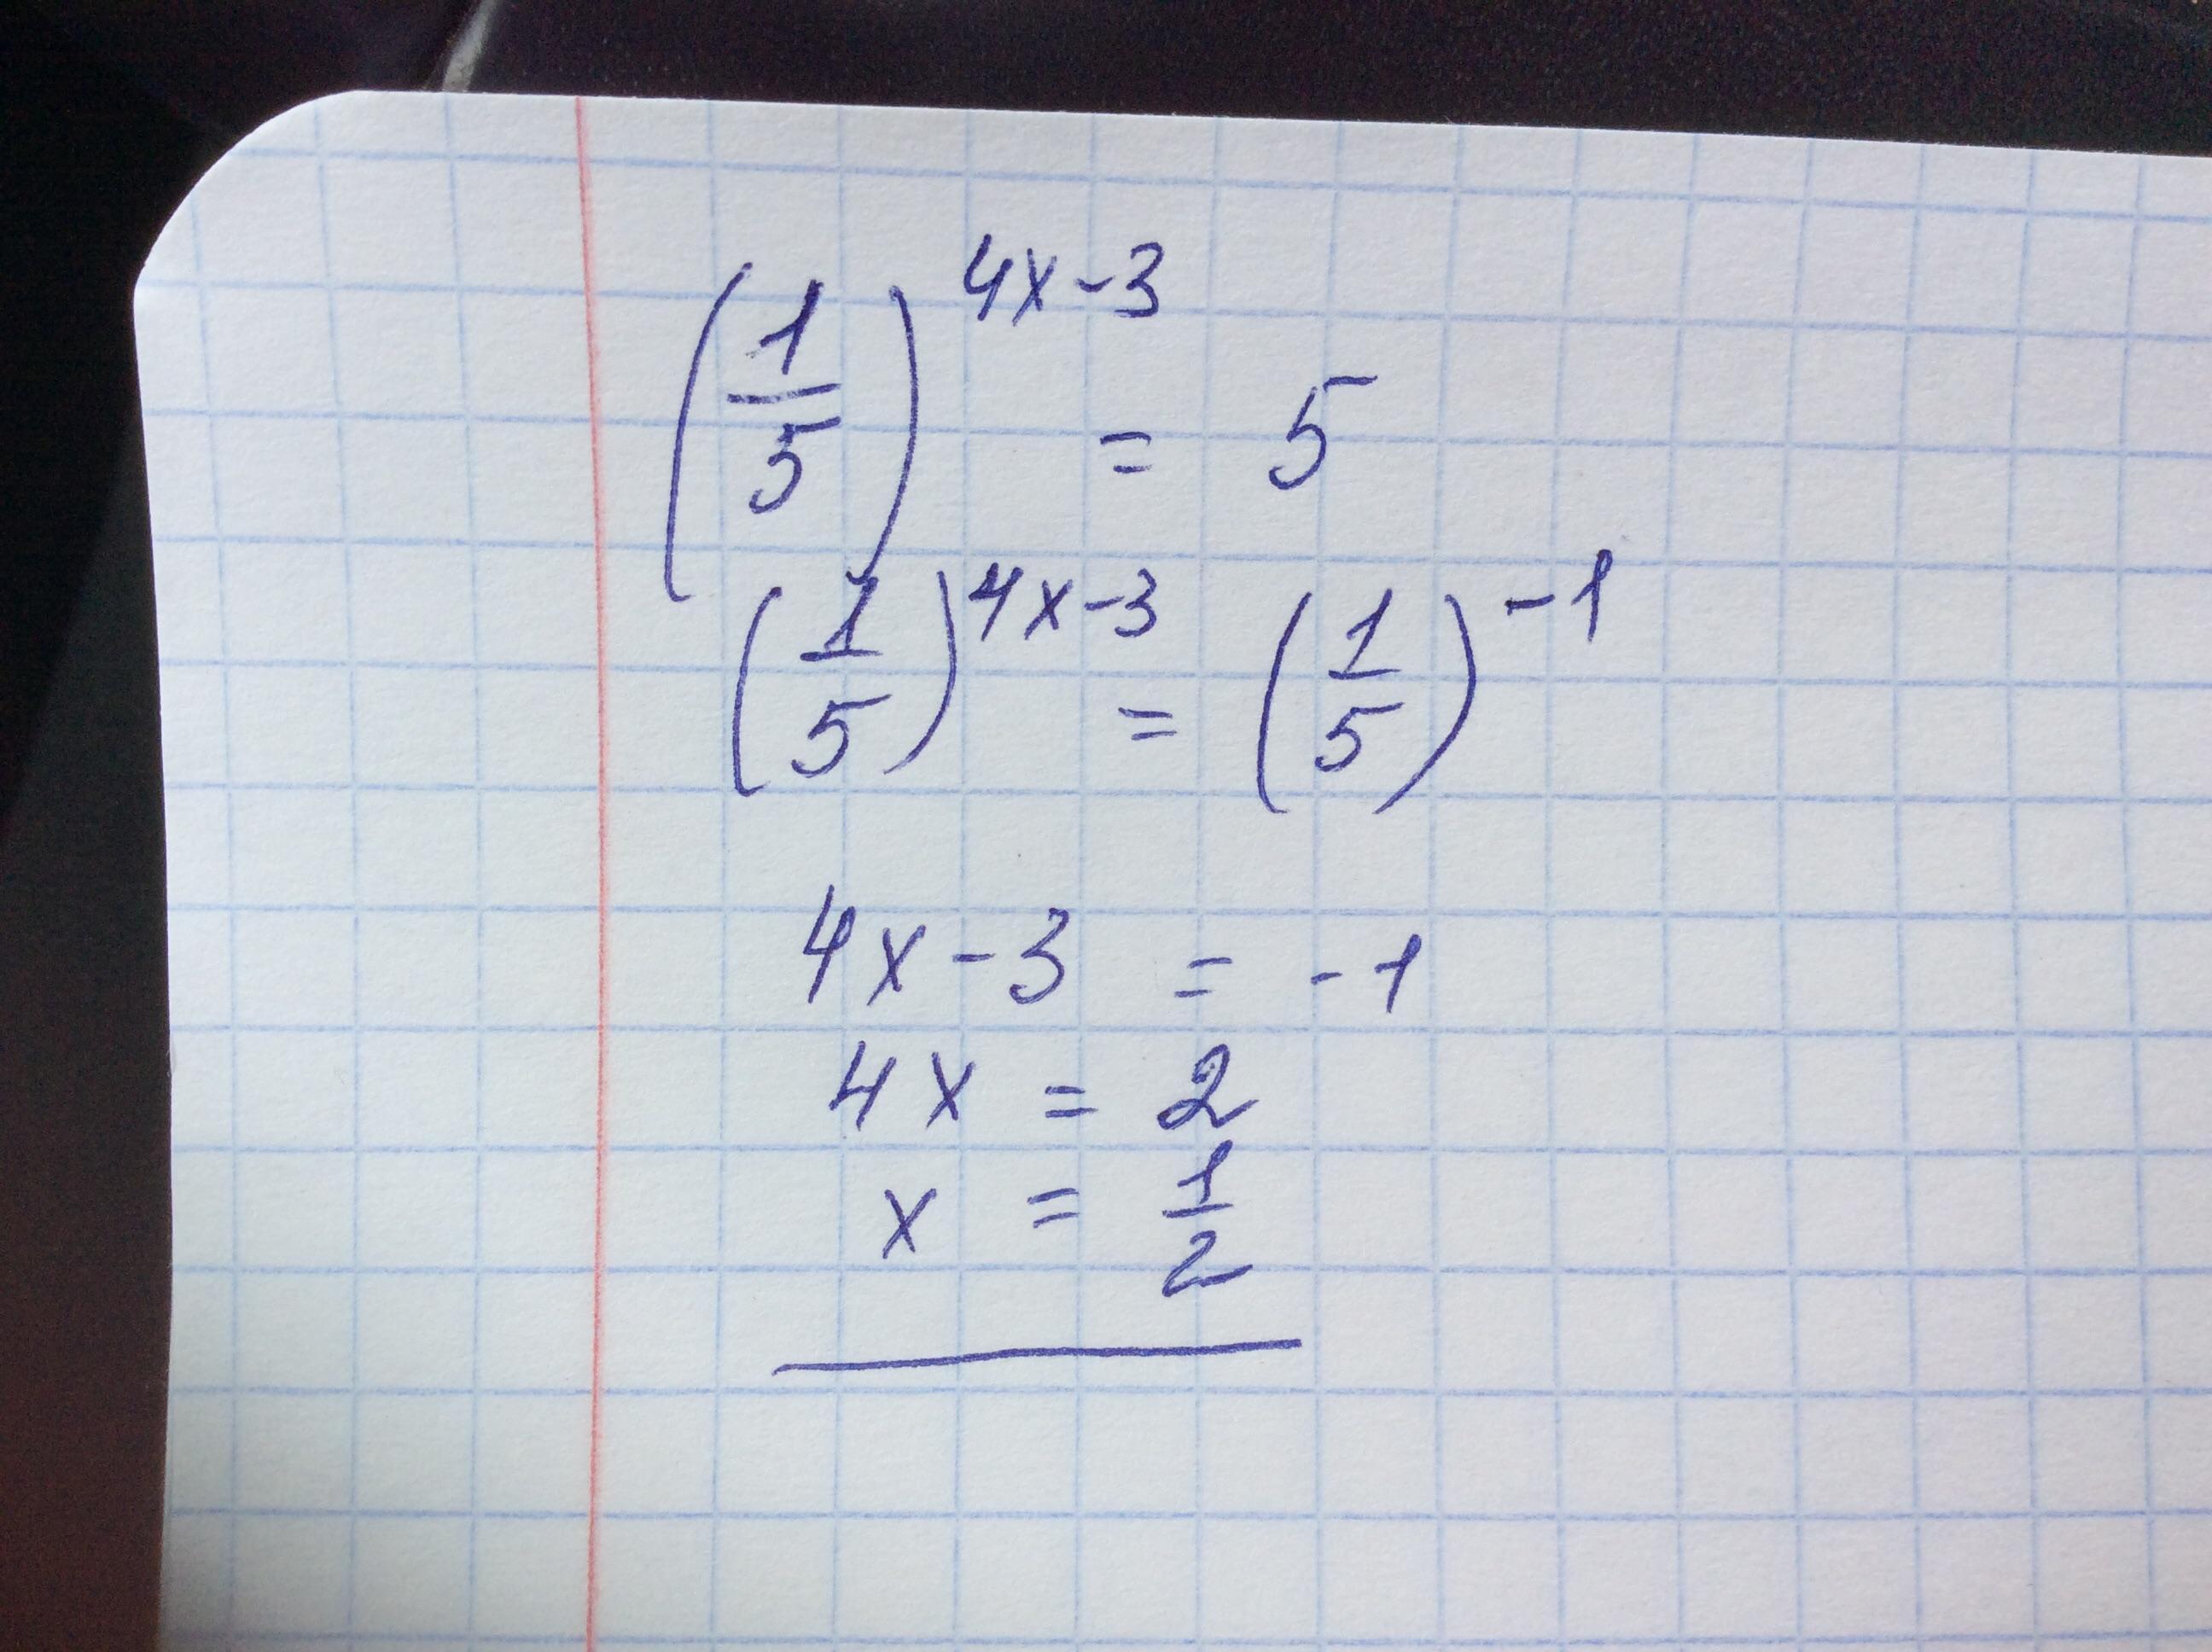 (1/5)^(4x-3) = 5
(1/5)^(4x-3) = (1/5)^(-1)
4x-3 = -1
4x = 2
x = 1/2